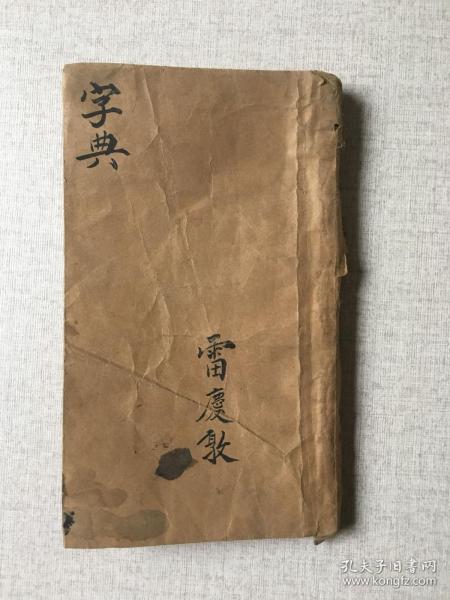 字典
雷慶敦
孔夫子旧书网
www.kongfz.com